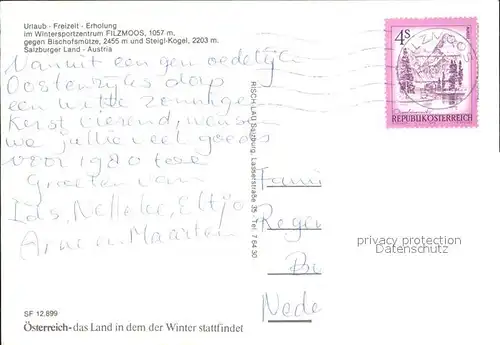 Urlaub - Freizeit - Erholung
im Wintersportzentrum FILZMOOS, 1057 m,
gegen Bischofsmütze, 2455 m und Steigl-Kogel, 2203 m.
Salzburger Land - Austria
Vanuit een genoedelijk
Oostenrijks dorp
een witte zonnige
Kerst vierend, wensen
we jullie veel goeds
voor 1980 toe
Groeten van
Ids, Nelleke, Eltjo
Arne en Maarten
SF 12.899
Österreich - das Land in dem der Winter stattfindet
RISCH-LAU Salzburg, Lasserstraße 35, Tel. 7 64 30
4S
FILZMOOS
REPUBLIK ÖSTERREICH
Fami
Regen
Nede
privacy protection
Datenschutz